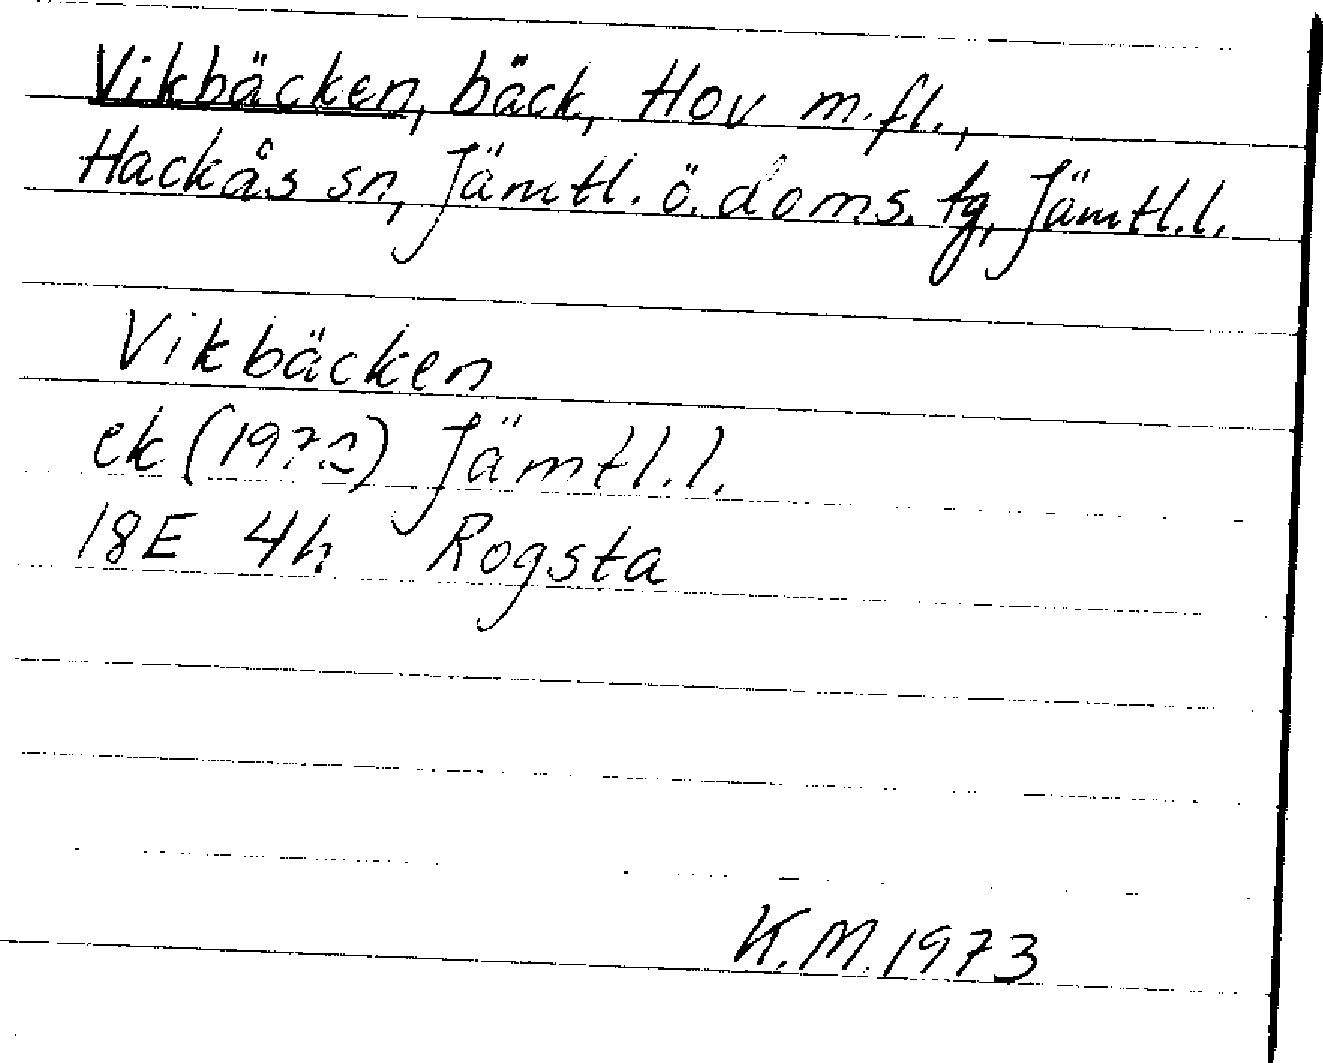 Vikbäcken, bäck, Hov m.fl.,
Hackås sn, Jämtl. ö. doms. tg, Jämtl.l.
Vikbäcken
ek (1972) Jämtl.l.
18E 4h Rogsta
K.M. 1973